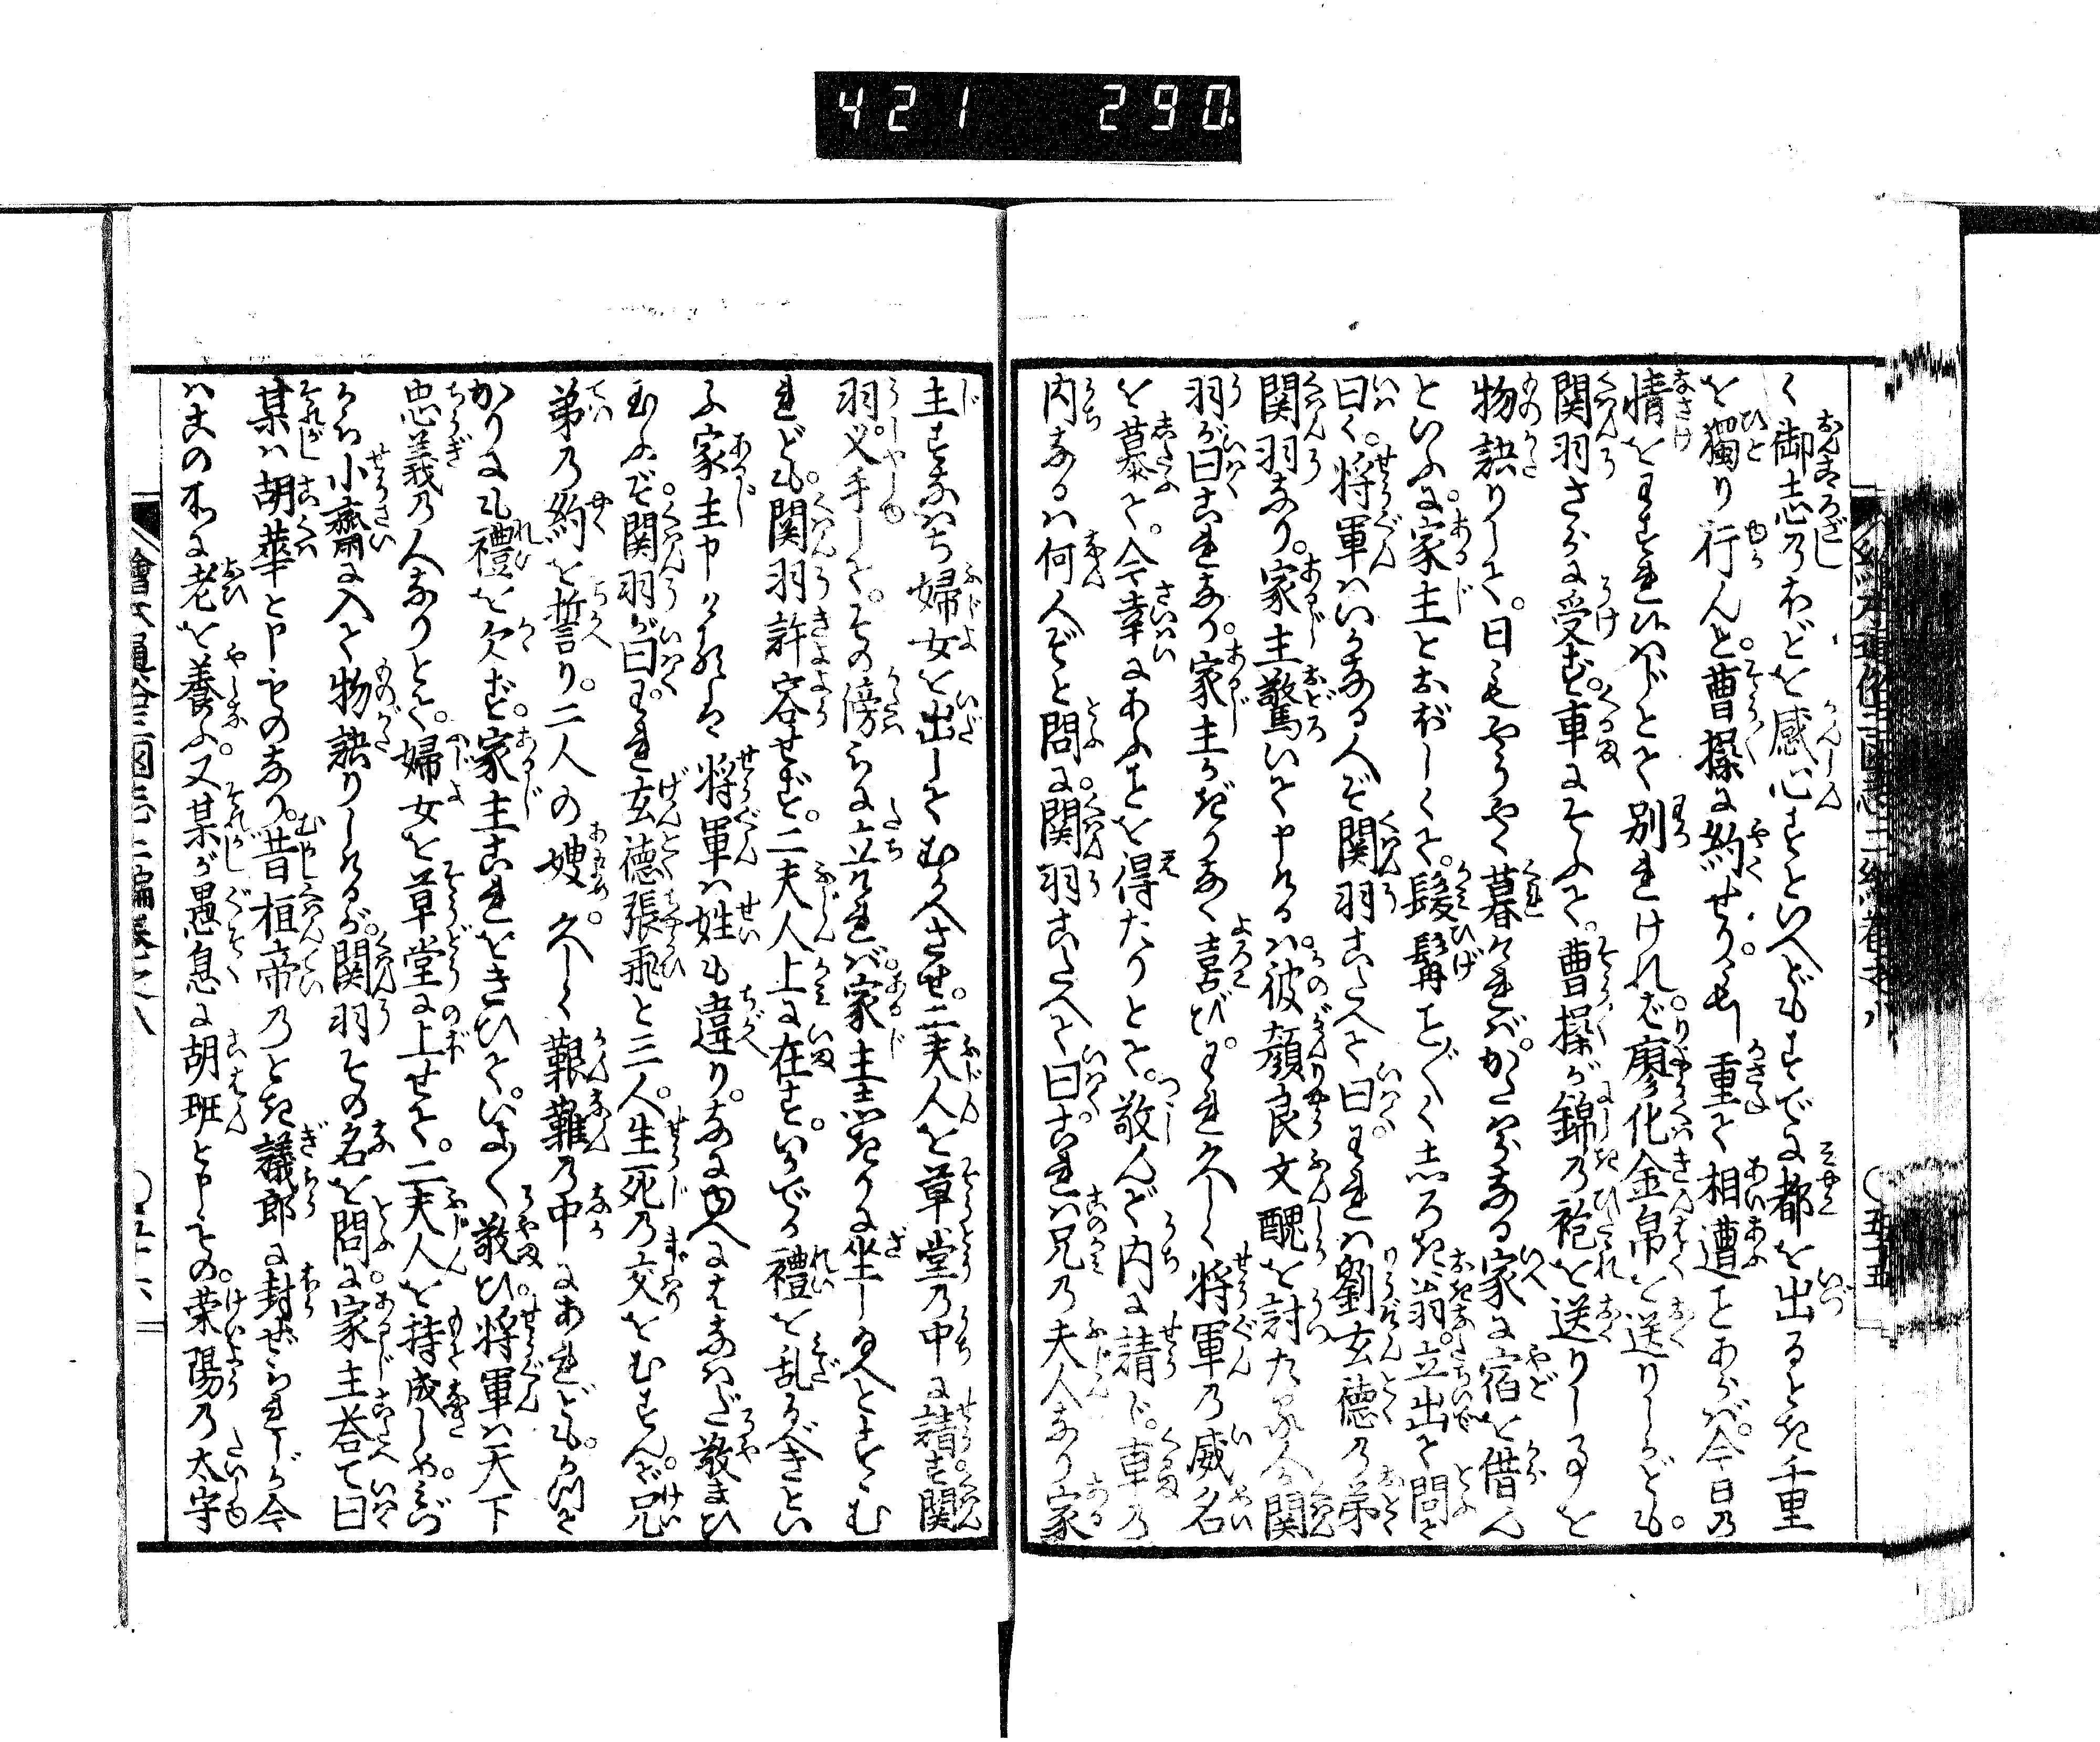 421 290
く御志のほどを感心すといへどもすでに都を出るとき千里
を獨り行んと曹操に約せり。もし重て相遭ことあらば。今日の
情をわすれひはじとて別れければ廖化金帛を送りしかども。
関羽さらに受ず。車にそふて。曹操が錦の袍を送りし事を
物語りして。日もやうやく暮ければ。かたはらなる家に宿を借ん
といふに。家主とおぼしくて。髪髯ことごとくしろき翁。立出て問て
曰く。将軍はいかなる人ぞ関羽こたへて曰われは劉玄徳の弟
関羽なり。家主驚いて申けるは。彼顔良文醜を討たる人か関
羽が曰これなり。家主かぎりなく喜び。われ久しく将軍の威名
を慕て。今幸にあふことを得たりとて。敬んで内に請じ。車の
内なるは何人ぞと問に。関羽こたへて曰。これは兄の夫人なり家
主すなはち婦女を出してむかへさせ。二夫人を草堂の中に請ず関
羽。叉手して。その傍らに立ければ。家主しきりに坐し給へとすゝむ
れども。関羽許容せず。二夫人上に在す。いかでか禮を乱るべきとい
ふ家主申けるは将軍は姓も違り。なにゆへにそなはだ敬まひ
玉ふぞ。関羽が曰。われ玄徳張飛と三人。生死の交をむすんで。兄
弟の約を誓り。二人の嫂。久しく艱難の中にあれども。かつて
かりにも禮を欠ず。家主これをきひて。いよいよ敬ひ。将軍は天下
忠義の人なりとて。婦女を草堂に上せて。二夫人を持成しめ。みづ
から小齋に入て物語りしけるが。関羽その名を問に。家主荅て曰
某は胡華と申ものなり。昔桓帝のとき議郎に封ぜられしが今
はこの所に老を養ふ。又某が愚息に胡班と申もの。栄陽の太守
繪本通俗三國志二編巻之八